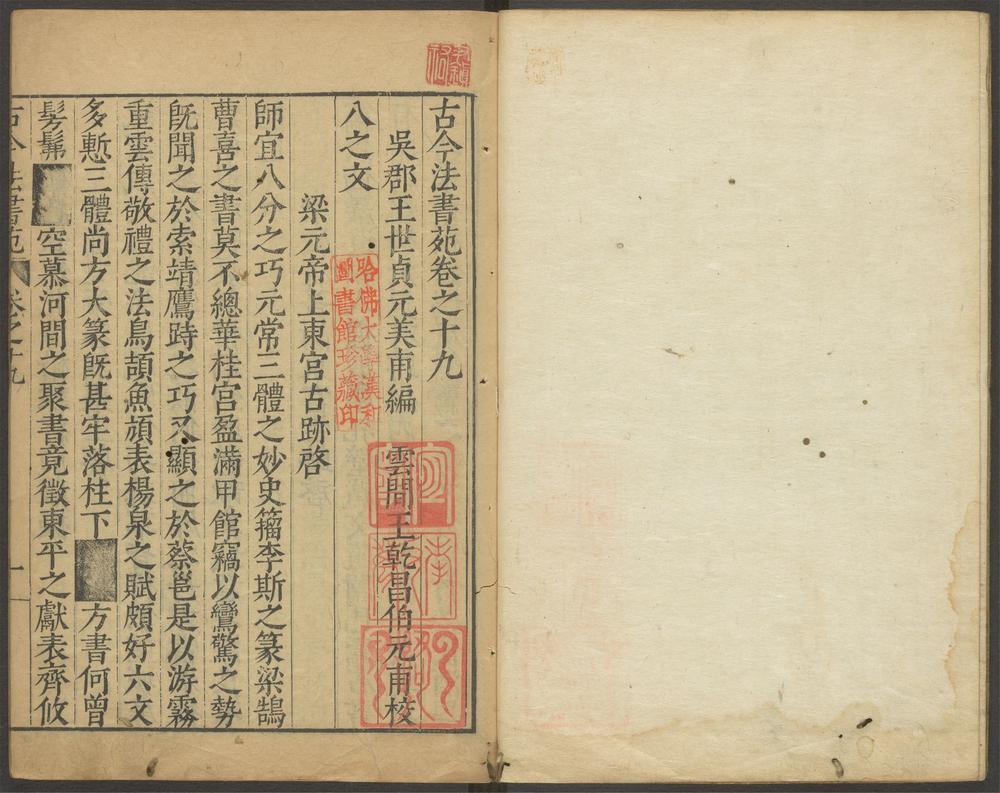 古今法書苑卷之十九
吳郡王世貞元美甫編 雲間王乾昌伯元甫校
八之文
梁元帝上東宮古跡啓
師宜八分之巧元常三體之妙史籀李斯之篆梁鵠
曹喜之書莫不總華桂宮盈滿甲館竊以鸞驚之勢
旣聞之於索靖鷹跱之巧又顯之於蔡邕是以游霧
重雲傳敬禮之法鳥頡魚頏表楊泉之賦頗好六文
多慙三體尚方大篆旣甚牢落柱下 方書何曾
髣髴 空慕河間之聚書竟徵東平之獻表齊攸
古今法書苑 卷之十九 一
哈佛大學漢和
圖書館珍藏印